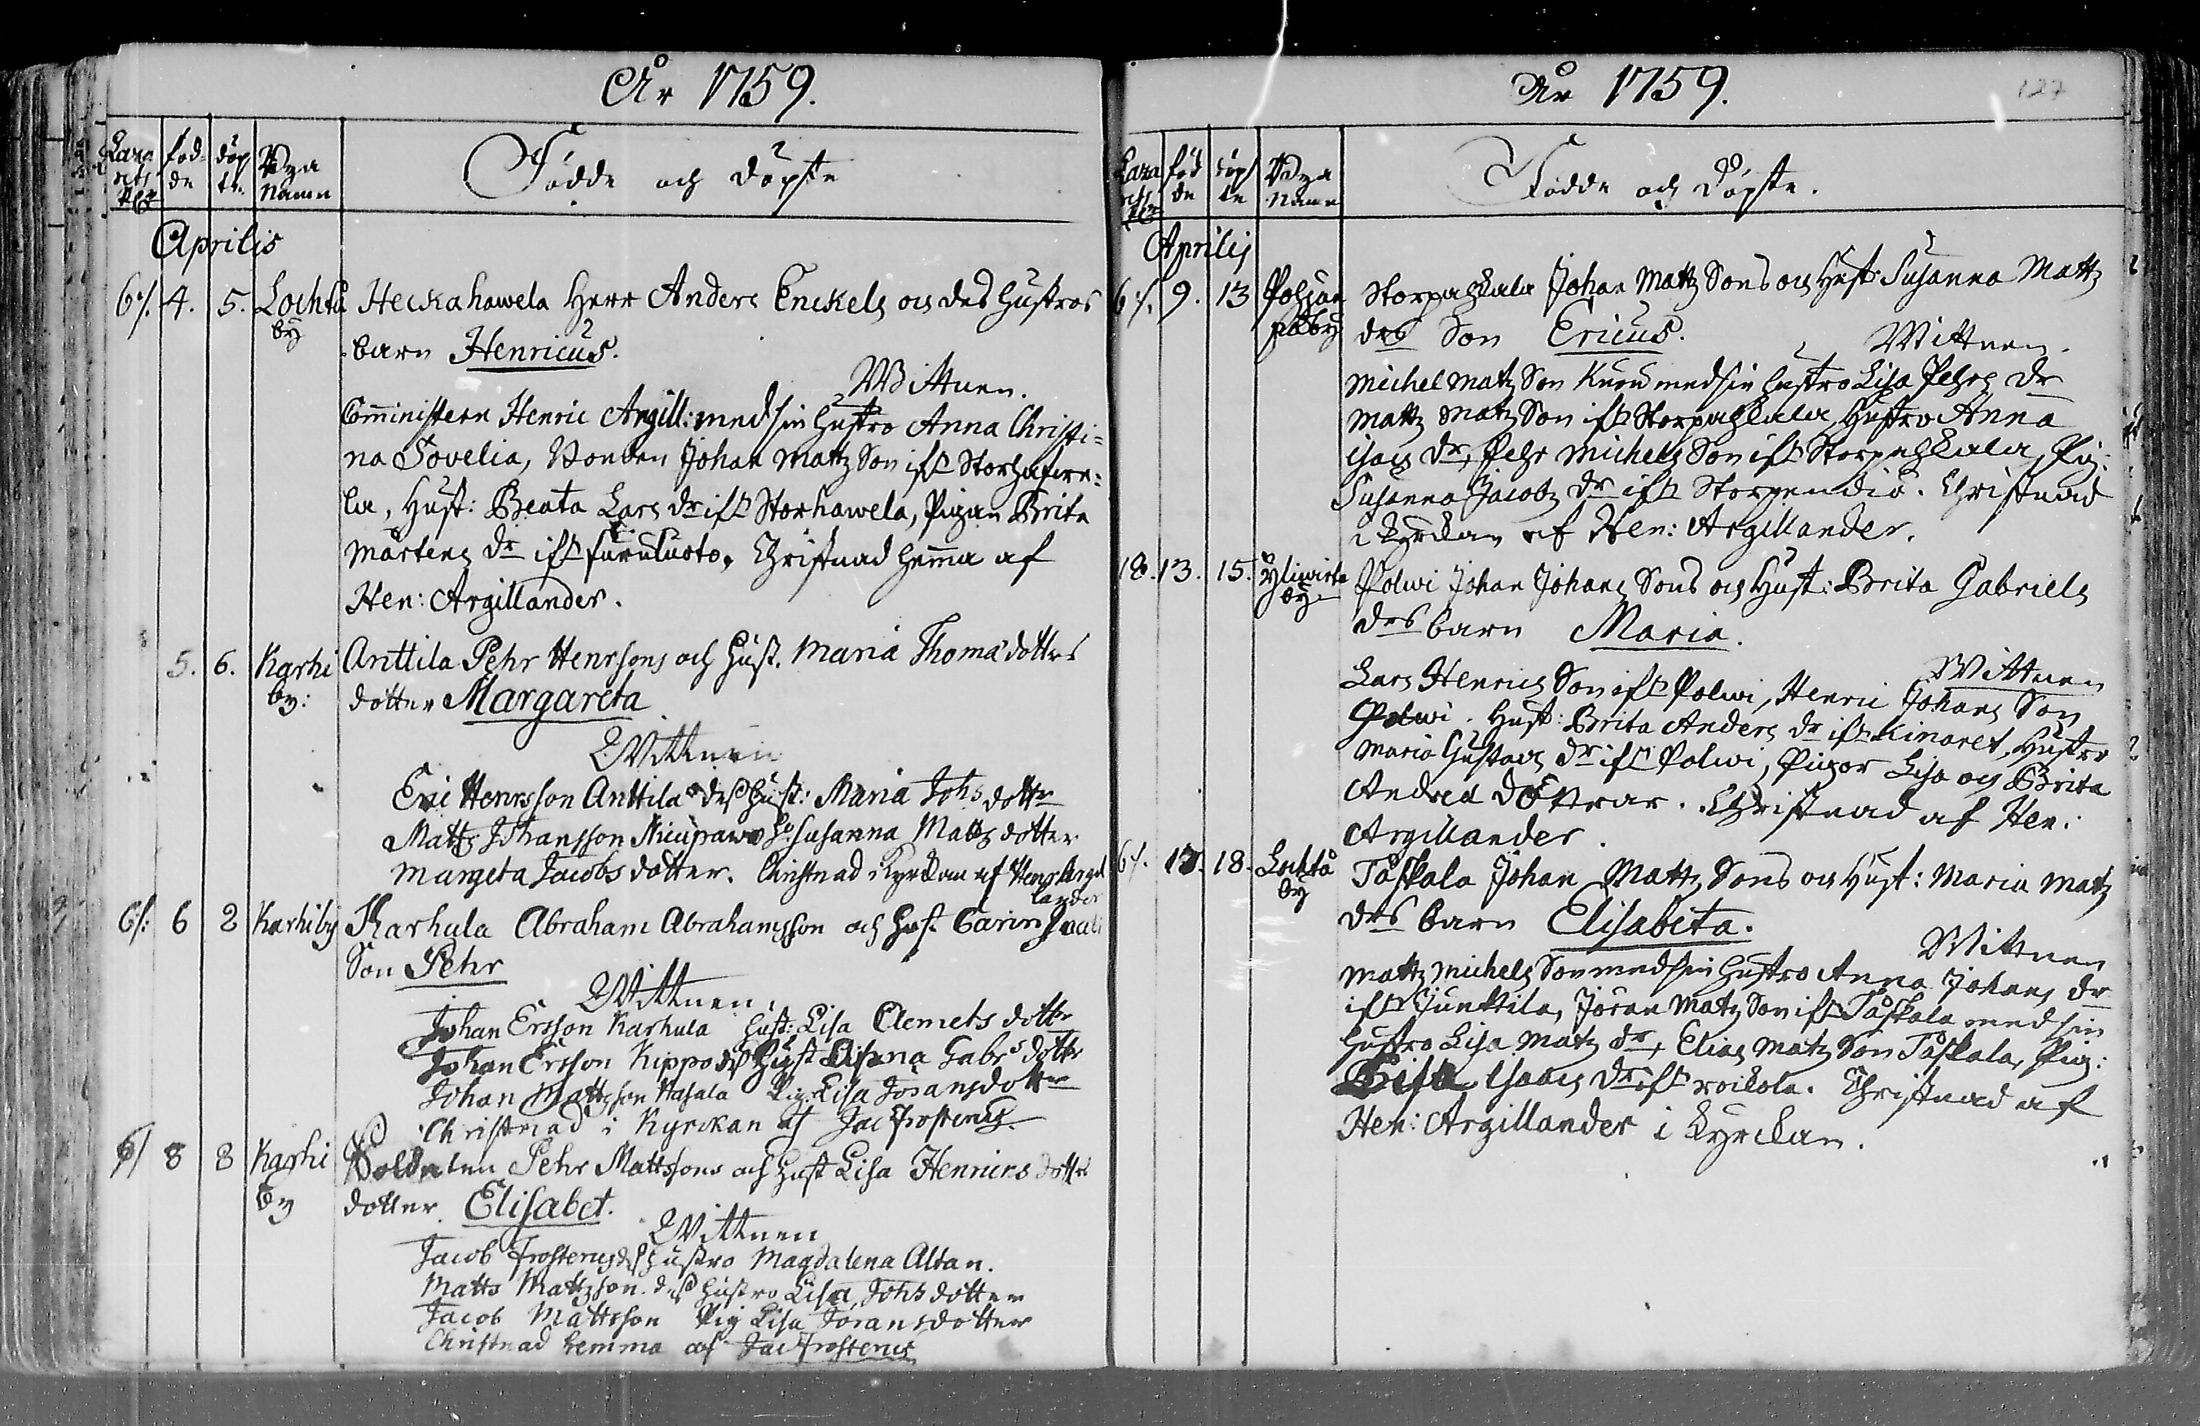 År 1759.
föd-
de
döp
te
Bya
Namn
Födde och döpte
Aprilis
6/. 4. 5. Lochtå Heckahawela Herr Anders Enckels och des hustros
by barn Henricus.
Wittnen.
Comministern Henric Argill: med sin hustro Anna Christi-
na Sovelia, Bonden Johan Matts Son ifr
la, Hust: Beata Lars dr ifr Storhawela, Pigan Brita
Mårtens dr ifr Furuluoto. Christnad hemma af
Hen: Argillander.
5. 6. Karhi Anttila Pehr Henrsons och Hust. Maria Thomædotters
by: dotter Margareta
Wittnen
Eric Henrsson Anttila des Hust: Maria Johs dotter
Matts Johansson Susanna Matts dotter
Margeta Jacobs dotter. Christnad i Kyrckan af Henr Argil
lander
6/: 6 8 Karhiby Karhula Abraham Abrahamsson och Hust Carin
Son Pehr
Wittnen
Johan Ersson Karhula Hust: Lisa Clemets dotter
Johan Ersson Kippo des Hust Gabrs dotter
Johan Mattsson Pig. Lisa Joransdotter
Christnad i Kyrckan af Jac Frosterus.
6/ 8 8 Karhi Soldaten Pehr Mattssons och Hust Lisa Henrics dotters
by dotter Elisabet.
Wittnen
Jacob Frosterus des hustro Magdalena Altan.
Matts Mattsson des hustro Lisa Johs dotter
Jacob Mattsson Pig Lisa Joransdotter
Christnad hemma af Jac Frosterus
År 1759.
127
föd
de
döp
te
Bya
Namn
Födde och Döpte.
Aprilis
6/. 9. 13 Pohjan Storpahkala Johan Matts Sons och Hust: Susanna Matts
påby drs Son Ericus.
Wittnen.
Michel Matts Son med sin hustro Lisa Pehrs dr
Matts Matts Son ifr Storpahkala, Hustro Anna
Isacs dr, Pehr Michels Son ifr Storpahkala, Pig:
Susanna Jacobs dr ifr Storpendio. Christnad
i Kyrckan af Hen: Argillander.
18. 13. 15. Ylivirte Polwi Johan Johans Sons och Hust: Brita Gabriels
by drs barn Maria.
Wittnen
Lars Henrics Son ifr Polwi, Henric Johans Son
Polwi. Hust: Brita Anders dr ifr Kinaret, Hustro
Maria Gustavs dr ifr Polwi, Pigor Lisa och Brita
Andrea döttrar. Christnad af Hen:
Argillander.
6/. 17. 18. Lochtå Påskala Johan Matts Sons och Hust: Maria Matts
by drs barn Elisabeta.
Wittnen
Matts Michels Son med sin hustro Anna Johans dr
ifr Junttila, Jöran Matts Son ifr Påskala med sin
hustro Lisa Matts dr, Elias Matts Son Påskala, Pig:
Lisa Isacs dr ifr Roikola. Christnad af
Hen: Argillander i Kyrckan.